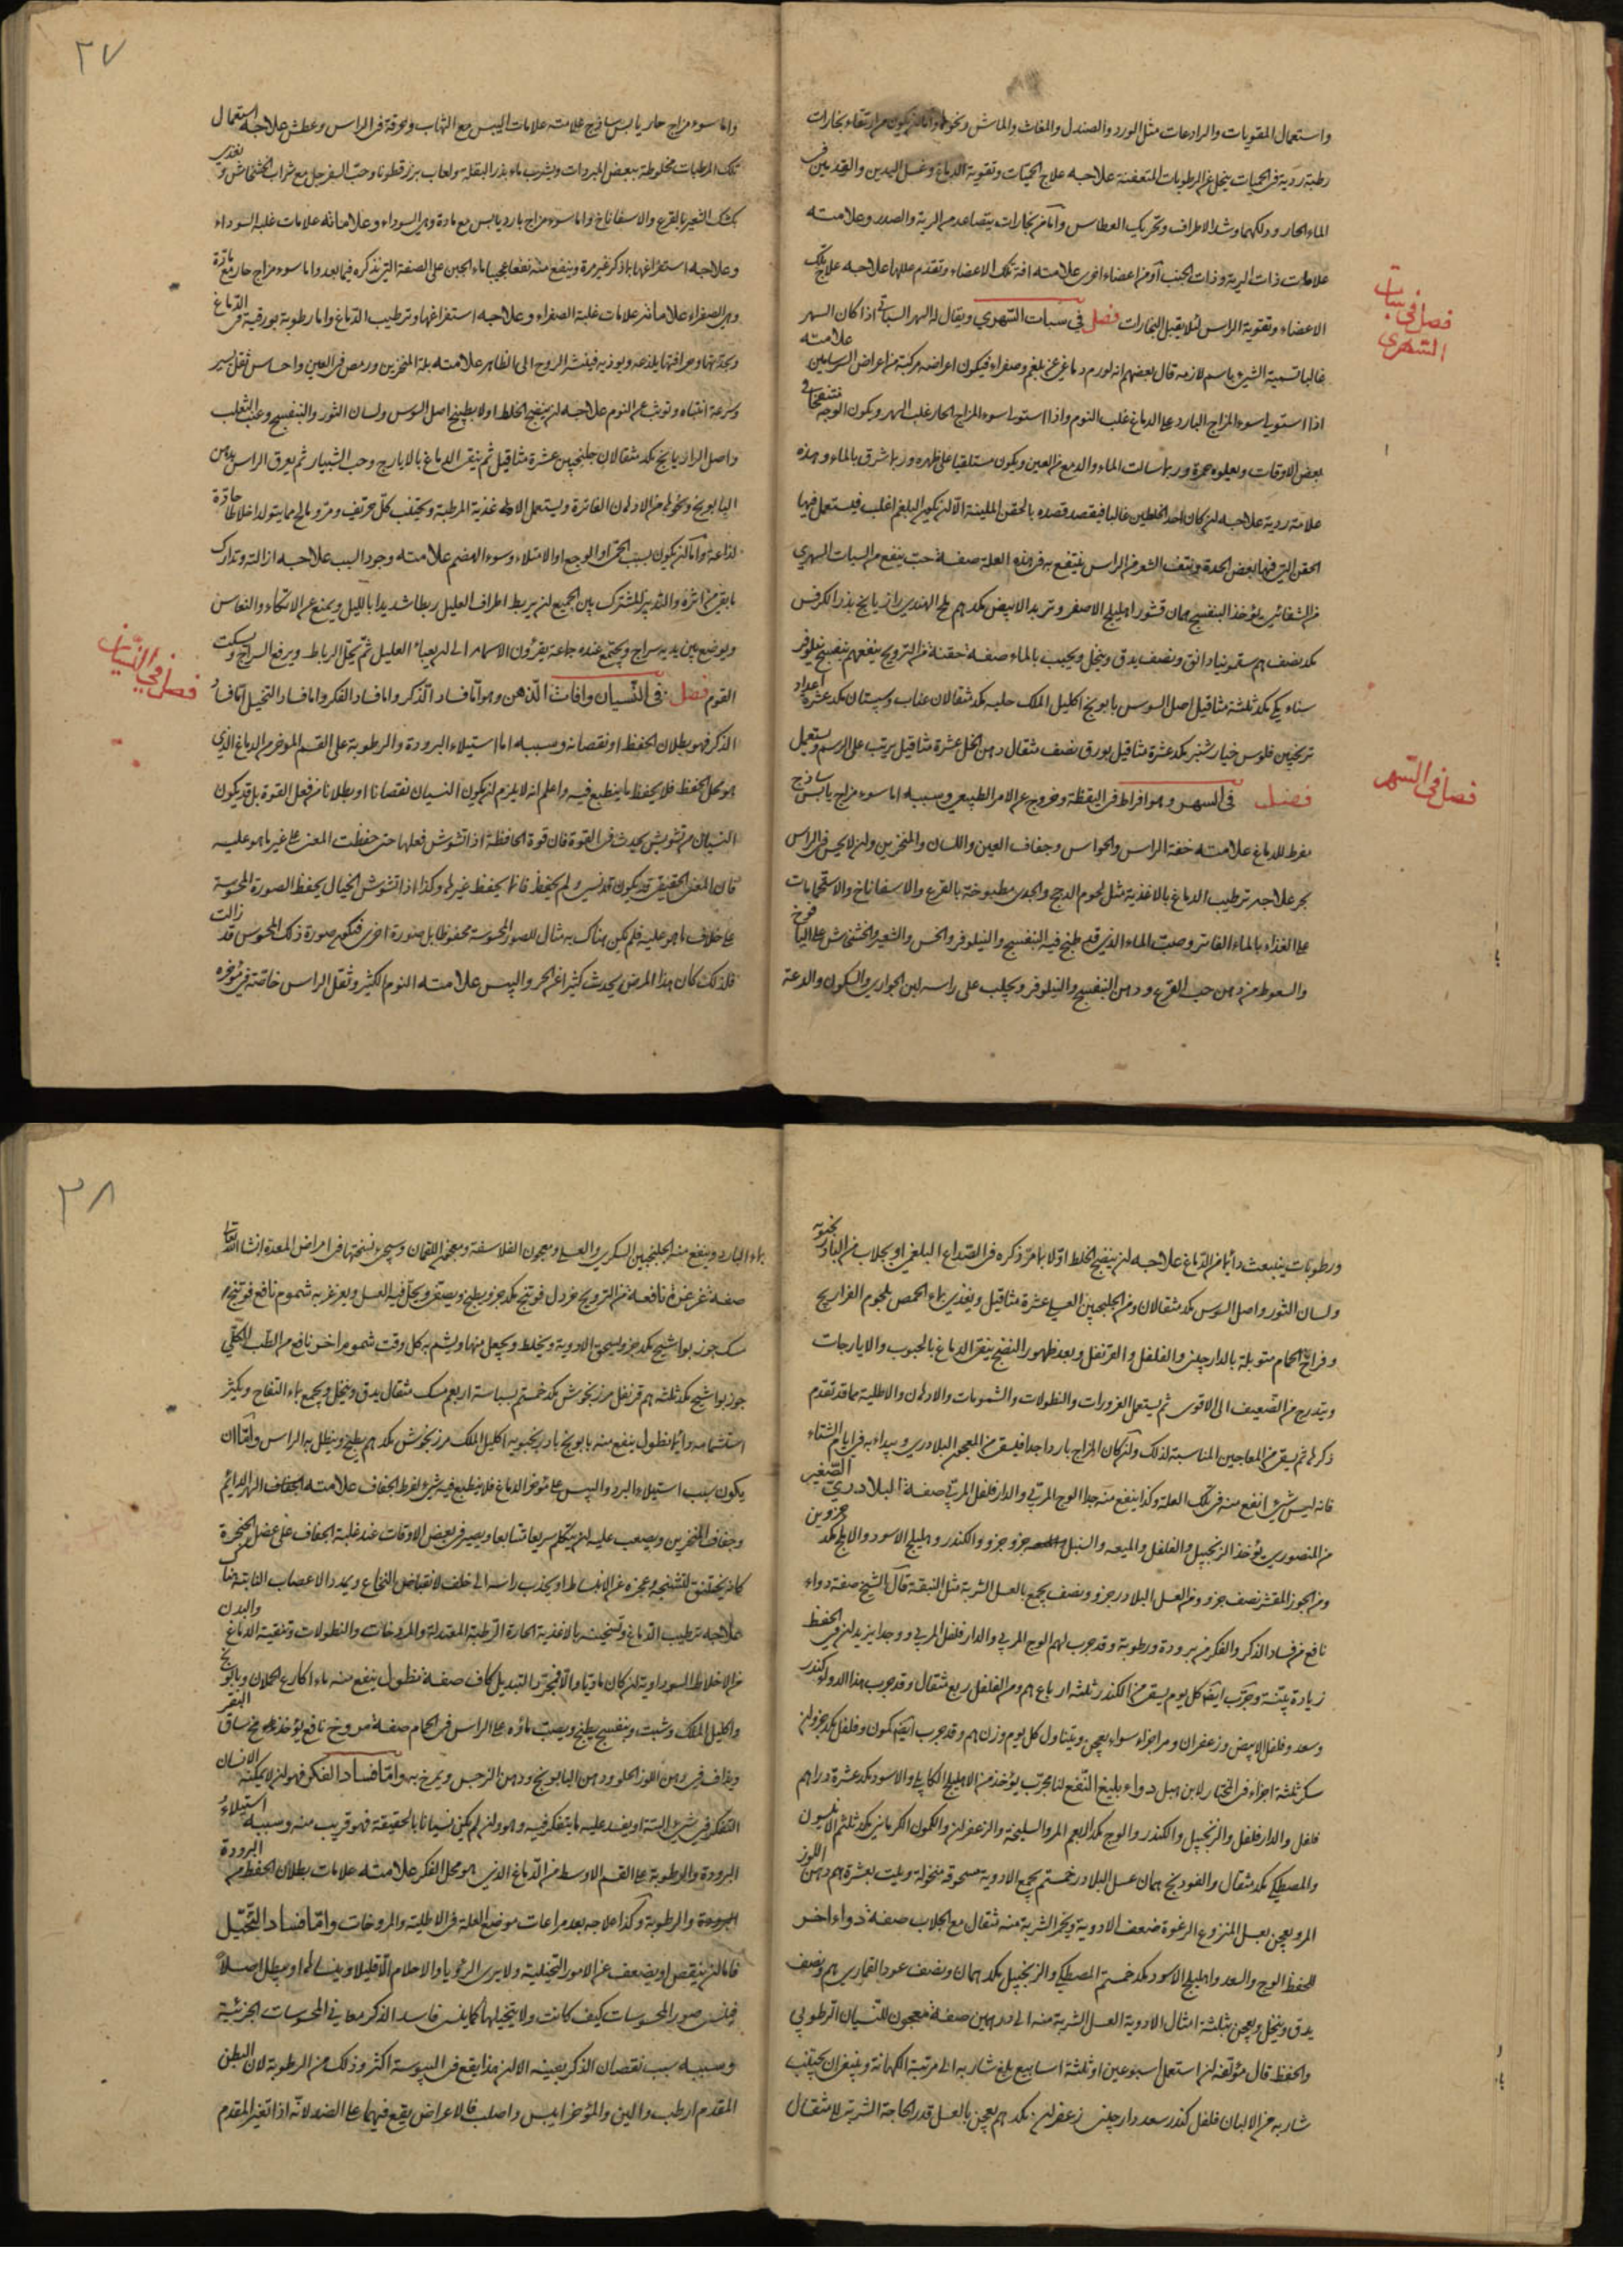 واستعمال المقويات والرادعات مثل الورد والصندل والمغاث والماش ونحوها واما لن يكون من ارتقاء بخارات
رطبة ردية فى الحميات ينحل عن الرطوبات المتعفنة علاجه علاج الحميات وتقوية الدماغ وغسل اليدين والقدمين فى
الماء الحار ودلكهما وشد الاطراف وتحريك العطاس واما من بخارات يتصاعد من الرية والصدر وعلامته
علامات ذات الرية وذات الجنب او من اعضاء اخرى علامته افة تلك الاعضاء وتقدم عللها علاجه علاج تلك
الاعضاء وتقوية الراس لئلا يقبل البخارات فصل فى سبات السهري ويقال له السهر السباتى اذا كان السهر
غالبا تسمية الشىء باسم لازمه قال بعضهم انه لورم دماغى عن بلغم وصفراء فيكون اعراضه مركبة من اعراض السرسامين علامته
اذا استولى سوء المزاج البارد على الدماغ غلب النوم واذا استولى سوء المزاج الحار غلب السهر ويكون الوجه منتفخا فى
بعض الاوقات ويعلوه حمرة وربما سالت الماء والدمع من العين ويكون مستلقيا على ظهره وربما شرق بالماء وهذه
علامة ردية علاجه لن كان احد الخلطين غالبا فيقصد قصده بالحقن الملينة الا لن يكون البلغم اغلب فيستعمل فيها
الحقن التى فيها بعض الحدة ونتف الشعر من الراس ينتفع به فى هذه العلة صفة حب ينفع من السبات السهري
من الشفائى يؤخذ البنفسج درهمان قشور اهليلج الاصفر وتربد الابيض مكد درهم ملح الهندى رازيانج بذر الكرفس
مكد نصف درهم سقمونيا دانق ونصف يدق وينخل ويحبب بالماء صفة حقنة من الترويح ينفعهم بنفسج نيلوفر
سناء مكى مكد ثلثة مثاقيل اصل السوس بابونج اكليل الملك حلبه مكد مثقالان عناب وسپستان مكد عشرة اعداد
ترنجبين فلوس خيار شنبر مكد عشرة مثاقيل بورق نصف مثقال دهن الخل عشرة مثاقيل يرتب على الرسم ويستعمل
فصل فى السهر وهو افراط فى اليقظة وخروج عن الامر الطبيعى وسببه اما سوء مزاج يابس ساذج
مفرط للدماغ علامته خفة الراس والحواس وجفاف العين واللسان والمنخرين ولن لا يحس فى الراس
بحر علاجه ترطيب الدماغ بالاغذية مثل لحوم الدجج والجدى مطبوخة بالقرع والاسفاناخ والاستحمامات
على الغذاء بالماء الفاتر وصب الماء الذى قد طبخ فيه البنفسج والنيلوفر والخس والشعير والخشخاش على اليافوخ
والسعوط من دهن حب القرع ودهن البنفسج والنيلوفر ويحلب على راسه لبن الجوارى والسكون والدعة
فصل فى سبات السهري
فصل فى السهر
٢٧
واما سوء مزاج حار يابس ساذج علامته علامات اليبس مع التهاب وحرقة فى الراس وعطش علاجه استعمال
تلك المرطبات مخلوطة ببعض المبردات ويشرب ماء بذر البقلة ولعاب بزرقطونا وحب السفرجل مع شراب الخشخاش وتغذى
بكشك الشعير بالقرع والاسفاناخ واما سوء مزاج بارد يابس مع مادة وهى السوداء وعلاماته علامات غلبة السوداء
وعلاجه استفراغها بما ذكر غير مرة وينفع منه نفعا عجيبا ماء الجبن على الصفة التى نذكره فيما بعد واما سوء مزاج حار مع مادة
وهى الصفراء علاماته علامات غلبة الصفراء وعلاجه استفراغها وترطيب الدماغ واما رطوبة بورقية فى الدماغ
وبحدتها وحرافتها يلذعه ويوذيه فينشر الروح الى الظاهر علامته بلة المنخرين ورمص فى العين واحساس ثقل يسير
وسرعة انتباه وتوثب عن النوم علاجه لن ينضج الخلط اولا بطبيخ اصل السوس ولسان الثور والبنفسج وعنب الثعلب
واصل الرازيانج مكد مثقالان جلنجبين عشرة مثاقيل ثم ينقى الدماغ بالايارج وحب الشبيار ثم يعرق الراس بدهن
البابونج ونحوها من الادهان الفاترة ويستعمل الاغذية المرطبة ويجتنب كل حريف ومر ومالح مما يتولد اخلاطا حادة
لذاعة واما لن يكون بسبب الحمى او الوجع او الامتلاء وسوء الهضم علامته وجود السبب علاجه ازالته وتدارك
ما بقى من اثره والتدبير المشترك بين الجميع لن يربط اطراف العليل ربطا شديدا بالليل ويمنع عن الاتكاء والنعاس
ويوضع بين يديه سراج ويجتمع عنده جماعة يقرؤن الاسمار الى لن يعياء العليل ثم تحل الرباط ويرفع السراج وسكت
القوم فصل فى النسيان وافات الذهن وهو اما فساد الذكر واما فساد الفكر واما فساد التخيل اما فساد
الذكر فهو بطلان الحفظ او نقصانه وسببه اما استيلاء البرودة والرطوبة على القسم الموخر من الدماغ الذى
هو محل الحفظ فلا يحفظ ما ينطبع فيه واعلم انه لا يلزم لن يكون النسيان نقصانا او بطلانا من فعل القوة بل قد يكون
النسيان من تشويش يحدث فى القوة فان قوة الحافظة اذا تشوش فعلها حتى حفظت المعنى على غير ما هو عليه
فان المعنى الحقيقى قد يكون قد نسى ولم يحفظ فانما يحفظ غيرها وكذا اذا تشوش الخيال يحفظ الصورة المحسوسة
على خلاف ما هو عليه فلم يكن هناك به مثال للصور المحسوسة محفوظا بل صورة اخرى فتكون صورة ذلك المحسوس قد زالت
فلذلك كان هذا المرض يحدث كثيرا عن الحر واليبس علامته النوم الكثير وثقل الراس خاصة فى موخره
فصل فى النسيان
ورطوبات ينبعث دائما من الدماغ علاجه لن ينضج الخلط اولا بما مر ذكره فى الصداع البلغمى او بجلاب من البادرنجبويه
ولسان الثور واصل السوس مكد مثقالان ومن الجلنجبين العسلى عشرة مثاقيل ويغذى بماء الحمص بلحوم الفراريج
وفراخ الحمام متوبلة بالدارچينى والفلفل والقرنفل وبعد ظهور النضج ينقى الدماغ بالحبوب والايارجات
ويتدرج من الضعيف الى الاقوى ثم يستعمل الغرورات والنطولات والشمومات والادهان والاطلية مما قد تقدم
ذكرها ثم يسقى من المعاجين المناسبة لذلك ولن كان المزاج باردا جدا فيسقى من المعجون البلادرى ويبداء به فى ايام الشتاء
فانه ليس شىء انفع منه فى تلك العلة وكذا ينفع منه جدا الوج المربى والدارفلفل المربى صفة البلادرى الصغير
من المنصوري يؤخذ الزنجبيل والفلفل والميعه والسنبل جزو جزو والكندر وهليلج الاسود والابلج مكد جزوين
ومن الجوز المقشر نصف جزو ومن العسل البلادر جزو ونصف يجمع بالعسل الشربة مثل النبقة قال الشيخ صفة دواء
نافع من فساد الذكر والفكر من برودة ورطوبة وقد جرب لهم الوج المربى والدارفلفل المربى ووجدا يزيد لن فى الحفظ
زيادة بيّنة وجرب ايضا كل يوم يسقى من الكندر ثلثة ارباع درهم ومن الفلفل ربع مثقال وقد جرب هذا الدواء كندر
وسعد وفلفل الابيض وزعفران ومر اجزاء سواء يعجن ويتناول كل يوم وزن درهم وقد جرب ايضا كمون وفلفل مكد جزو لن
سكر ثلثة اجزاء فى المختار لابن هبل دواء بليغ النفع لنا مجرب يؤخذ من الاهليلج الكابلى والاسود مكد عشرة دراهم
فلفل والدارفلفل والزنجبيل والكندر والوج مكد اربعة درهم المر والسليخة والزعفران والكمون الكرمانى مكد ثلثة درهم انيسون
والمصطكى مكد مثقال والفودنج درهمان عسل البلادر خمسة درهم يجمع الادوية مسحوقة منخولة ويلت بعشرة درهم دهن اللوز
المر ويعجن بعسل المنزوع الرغوة ضعف الادوية ويخمر الشربة منه مثقال مع الجلاب صفة دواء اخر
للحفظ الوج والسعد واهليلج الاسود مكد خمسة درهم المصطكى والزنجبيل مكد درهمان ونصف عود القمارى درهم ونصف
يدق وينخل ويعجن بثلثة امثال الادوية العسل الشربة منه الى درهمين صفة معجون للنسيان الرطوبى
والحفظ قال مؤلفه لن استعمل اسبوعين او ثلثة اسابيع بلغ شاربه الى مرتبة الكهانة وينبغى ان يجتنب
شاربه من الالبان فلفل كندر سعد دارچينى زعفران مكد درهم يعجن بالعسل قدر الحاجة الشربة الى مثقال
٢٨
بماء البارد وينفع منه الجلنجبين السكرى والعسلى ومعجون الفلاسفة ومعجون اللقمان وسيجىء نسختها فى امراض المعدة انشاء الله تعالى
صفة غرغرة نافعة من الترويح خردل فوتنج مكد جزو يطبخ ويصفى ويحل فيه العسل ويغرغر به شموم نافع فوتنج
سك جوز بوا شيح مكد جزو يسحق الادوية ويخلط ويجعل منها ويشم به كل وقت شموم اخر نافع من الطب الملكى
جوز بوا شيح مكد ثلثة درهم قرنفل مرزنجوش مكد خمسة درهم بسباسة اربعة درهم مسك مثقال يدق وينخل ويجمع بماء التفاح ويكثر
استشمامه دائما نطول ينفع منه بابونج بادرنجبويه اكليل الملك مرزنجوش مكد درهم يطبخ وينطل به الراس واما ان
يكون بسبب استيلاء البرد واليبس على موخر الدماغ فلا ينطبع فيه شىء لفرط الجفاف علامته الجفاف السهر الدائم
وجفاف المنخرين ويصعب عليه لن يتكلم سريعا متتابعا ويصير فى بعض الاوقات عند غلبة الجفاف على عضل الحنجرة
كانه يختنق لتشنجه وعجزه عن الانبساط او يجذب راسه الى خلف لانقباض النخاع ويمدد الاعصاب النابتة هناك
علاجه ترطيب الدماغ وتسخينه بالاغذية الحارة الرطبة المعتدلة والمروخات والنطولات وتنقية الدماغ والبدن
من الاخلاط السوداوية لن كان ماديا والا فمجرد التبديل كاف صفة نطول ينفع منه ماء اكارع الحملان وبابونج
واكليل الملك وشبت وبنفسج يطبخ ويصب ماؤه على الراس فى الحمام صفة مروخ نافع يؤخذ مخ ساق البقر
ويداف فى دهن اللوز الحلو ودهن البابونج ودهن النرجس ويمرخ به واما فساد الفكر فهو لن لا يمكنه الانسان
التفكر فى شىء البتة او يفسد عليه ما يتفكر فيه وهو ولن لم يكن نسيانا بالحقيقة فهو قريب منه وسببه استيلاء
البرودة والرطوبة على القسم الاوسط من الدماغ الذى هو محل الفكر علامته علامات بطلان الحفظ من البرودة
البرودة والرطوبة وكذا علاجه بعد مراعات موضع العلة فى الاطلية والمروخات واما فساد التخيل
فاما لن ينقص او يضعف عن الامور التخيلية ولا يرى الرؤيا والاحلام الا قليلا وينساها او يبطل اصلا
فينسى صور المحسوسات كيف كانت ولا يتخيلها كما ينسى فاسد الذكر معانى المحسوسات الجزئية
وسببه سبب نقصان الذكر بعينه الا لن هذا يقع فى اليبوسة اكثر وذلك من الرطوبة لان البطن
المقدم ارطب والين والموخر ايبس واصلب فالاعراض يقع فيهما على الضد لانه اذا تغير المقدم